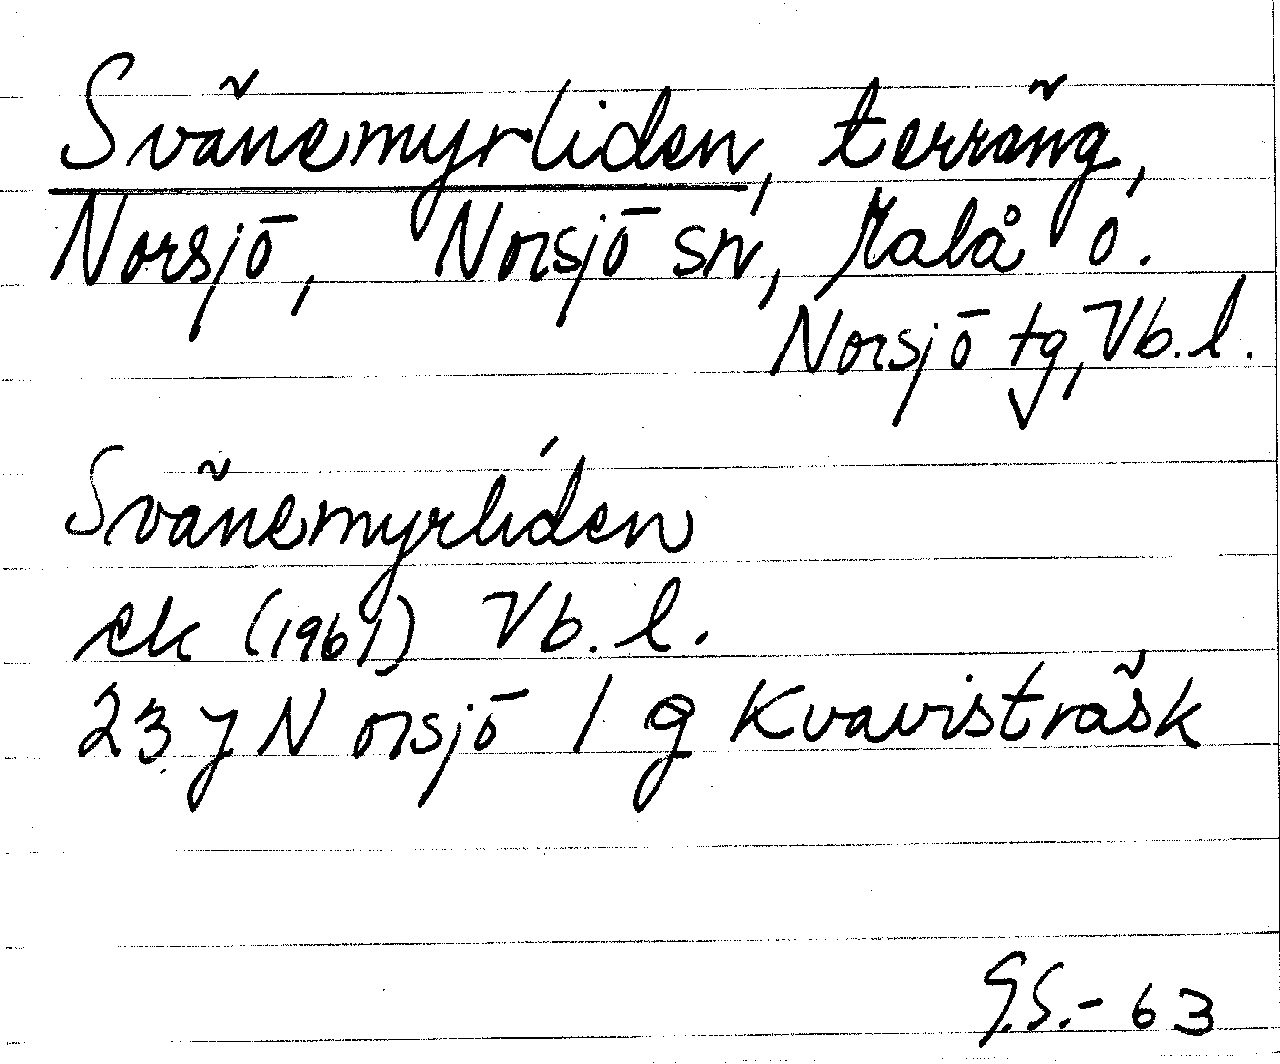 Svänemyrliden, terräng,
Norsjö, Norsjö sn, Malå o.
Norsjö tg, Vb. l.
Svänemyrliden
ek (1961) Vb. l.
23 J Norsjö 1 g Kvavisträsk
G.S.- 63